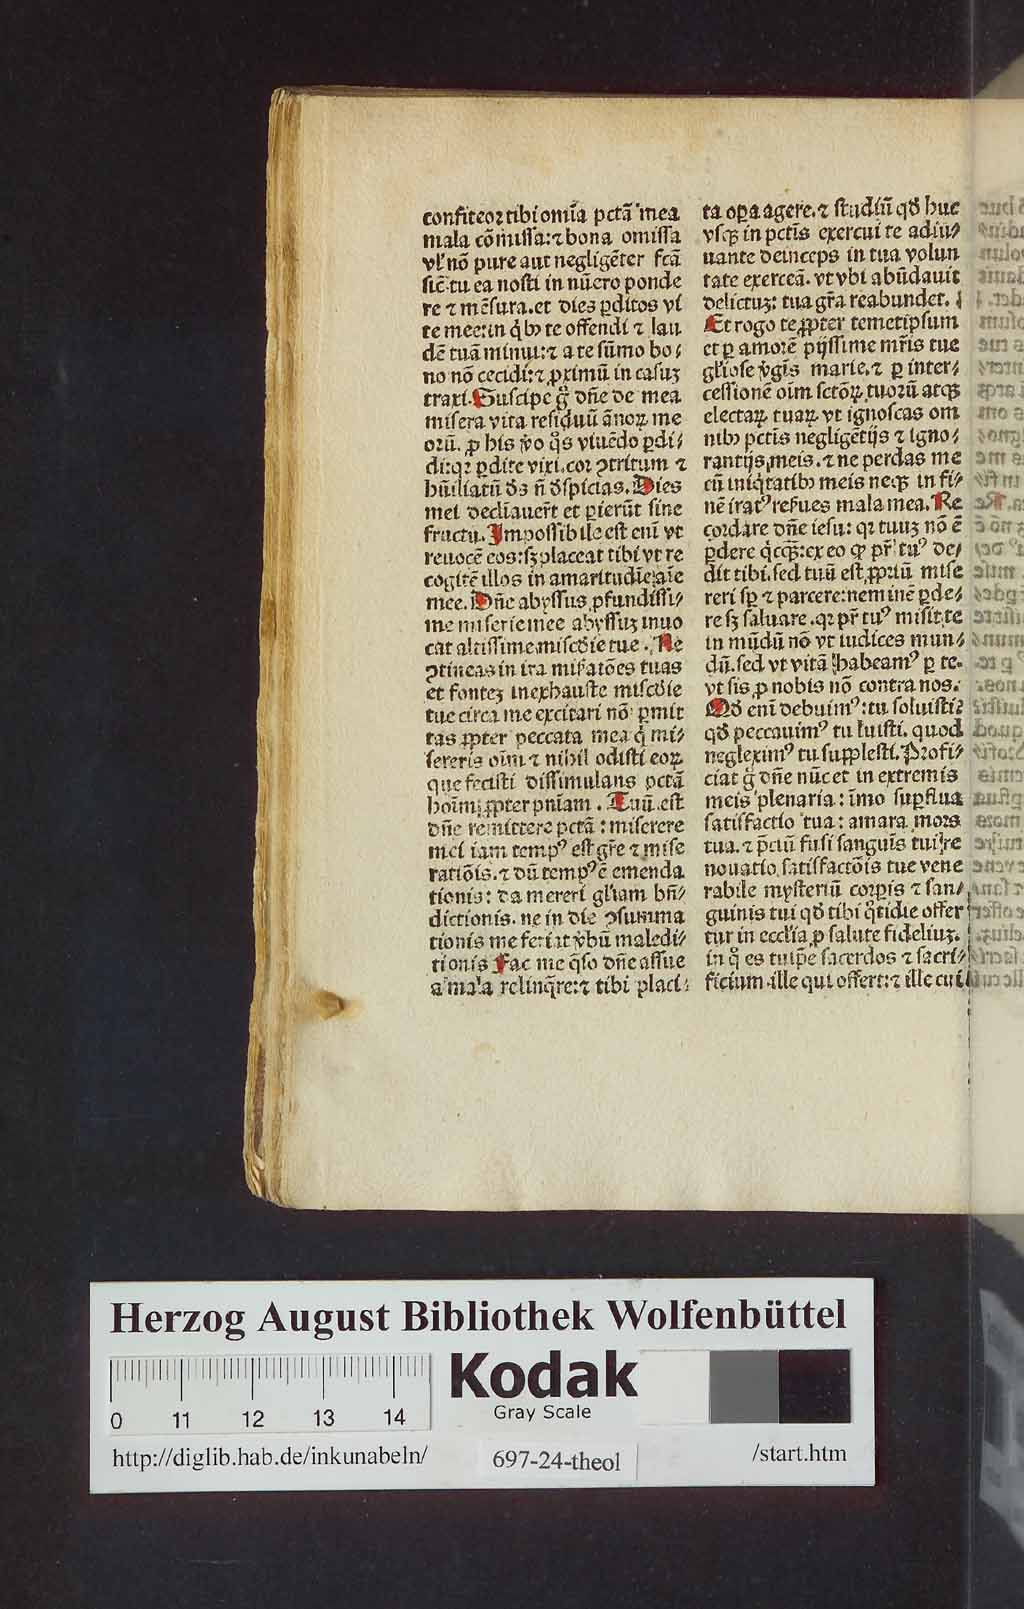 confiteoꝛ tibi om̄ia pctā mea
mala cōmissa: ⁊ bona omissa
vl' nō pure aut negligēter fcā
sicē tu ea nosti in nūero ponde
re ⁊ mēsura. et dies ꝑditos vi
te mee: in q̇bꝫ te offendi ⁊ lau
dē tuā minui: ⁊ a te sūmo bo⸗
no nō cecidi: ⁊ ꝓximū in casuꝫ
traxi. Suscipe gͦ dn̄e de mea
misera vita residuū ānoꝝ me
oꝛū. ꝓ his v̓o qͦs viuēdo ꝑdi⸗
di: qꝛ ꝑdite vixi. coꝛ ꝯtritum ⁊
hūiliatū ds̄ n̄ dspicias. Dies
mei decliauer̄t et ꝑierūt sine
fructu. Impossibile est enī vt
reuocē eos: sꝫ placeat tibi vt re
cogitē illos in amaritudīe aīe
mee. Dn̄e abyssus ꝓfundissi⸗
me miserie mee abyssuꝫ inuo
cat altissime misc̄die tue. Ne
ꝯtineas in ira misʳatōes tuas
et fonteꝫ inexhauste misc̄die
tue circa me excitari nō ꝑmit
tas ꝓpter peccata mea q̇ mi⸗
sereris oīm ⁊ nihil odisti eoꝝ
que fecisti dissimulans pctā
hoīm ꝓpter pn̄iam. Tuū est
dn̄e remittere pctā: miserere
mei iam tempꝰ est gr̄e ⁊ mise
ratiōis. ⁊ dū tempꝰ ē emenda
tionis: da mereri gl'iam bn̄⸗
dictionis. ne in die ꝯsumma
tionis me feriat v̓bū maledi⸗
tionis Fac me q̄so dn̄e assue
a mala relinq̄re: ⁊ tibi placi⸗
ta oꝑa agere. ⁊ studiū qd̄ huc
vsqꝫ in pctīs exercui te adiu⸗
uante deinceps in tua volun
tate exerceā. vt vbi abūdauit
delictuꝫ: tua gr̄a reabundet.
Et rogo te ꝓpter temetipsum
et ꝑ amoꝛē pijssime mr̄is tue
gl'iose v̓gīs marie. ⁊ ꝑ inter⸗
cessionē oīm sctōꝝ tuoꝛū atqꝫ
electaꝝ tuaꝝ vt ignoscas om
nibꝫ pctīs negligētijs ⁊ igno⸗
rantijs meis. ⁊ ne perdas me
cū iniq̇tatibꝫ meis neqꝫ in fi⸗
nē iratꝰ res̓ues mala mea. Re
coꝛdare dn̄e iesu: qꝛ tuuꝫ nō ē
ꝑdere q̇cq̄ꝫ: ex eo ꝙ pr̄ tuꝰ de⸗
dit tibi. sed tuū est ꝓpꝛiū mise
reri sꝑ ⁊ parcere: neminē ꝑde⸗
re sꝫ saluare. qꝛ pr̄ tuꝰ misit te
in mūdū nō vt iudices mun⸗
dū. sed vt vitā habeamꝰ ꝑ te.
vt sis ꝓ nobis nō contra nos.
Qd̄ enī debuimꝰ: tu soluisti:
qd̄ peccauimꝰ tu luisti. quod
neglexīmꝰ tu supplesti. Profi⸗
ciat gͦ dn̄e nūc et in extremis
meis plenaria: īmo suꝑflua
satisfactio tua: amara moꝛs
tua. ⁊ p̄ciū fusi sanguīs tui: re
nouatio satisfactōis tue vene
rabile mysteriū coꝛpis ⁊ san⸗
guinis tui qd̄ tibi qͦtidie offer
tur in eccl'ia ꝓ salute fideliuꝫ.
in qͦ es tu ip̄e sacerdos ⁊ sacri⸗
ficium. ille qui offert: ⁊ ille cui
Herzog August Bibliothek Wolfenbüttel
Kodak
Gray Scale
0 11 12 13 14
http://diglib.hab.de/inkunabeln/ 697-24-theol /start.htm